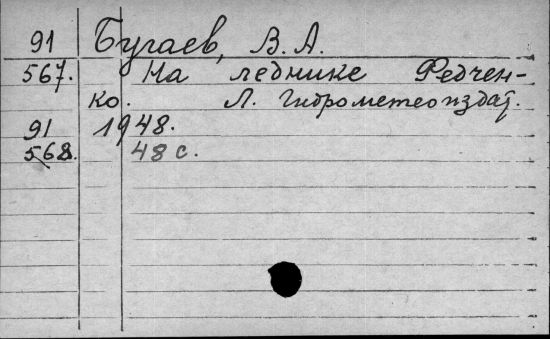 91 Бугаев, В. А.
567. На леднике Федчен-
ко. Л. Гидрометеоиздат.
91 1948.
568. 48 с.